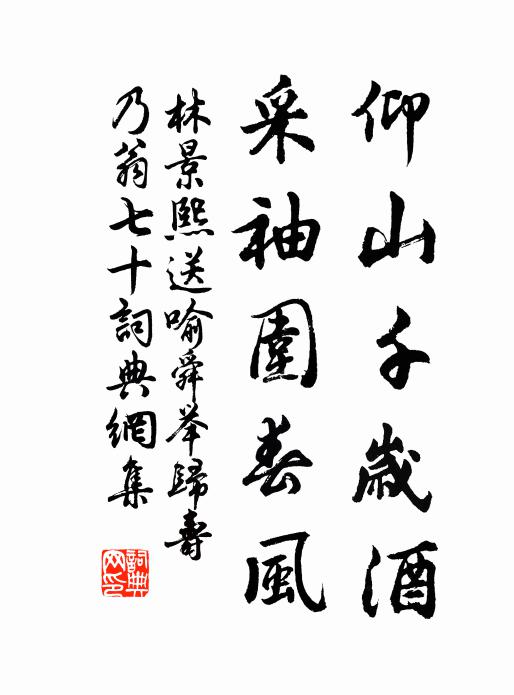 仰山千歲酒
采袖圍春風
林景熙送喻舜举歸壽
乃翁七十詞典網集
詞典网印